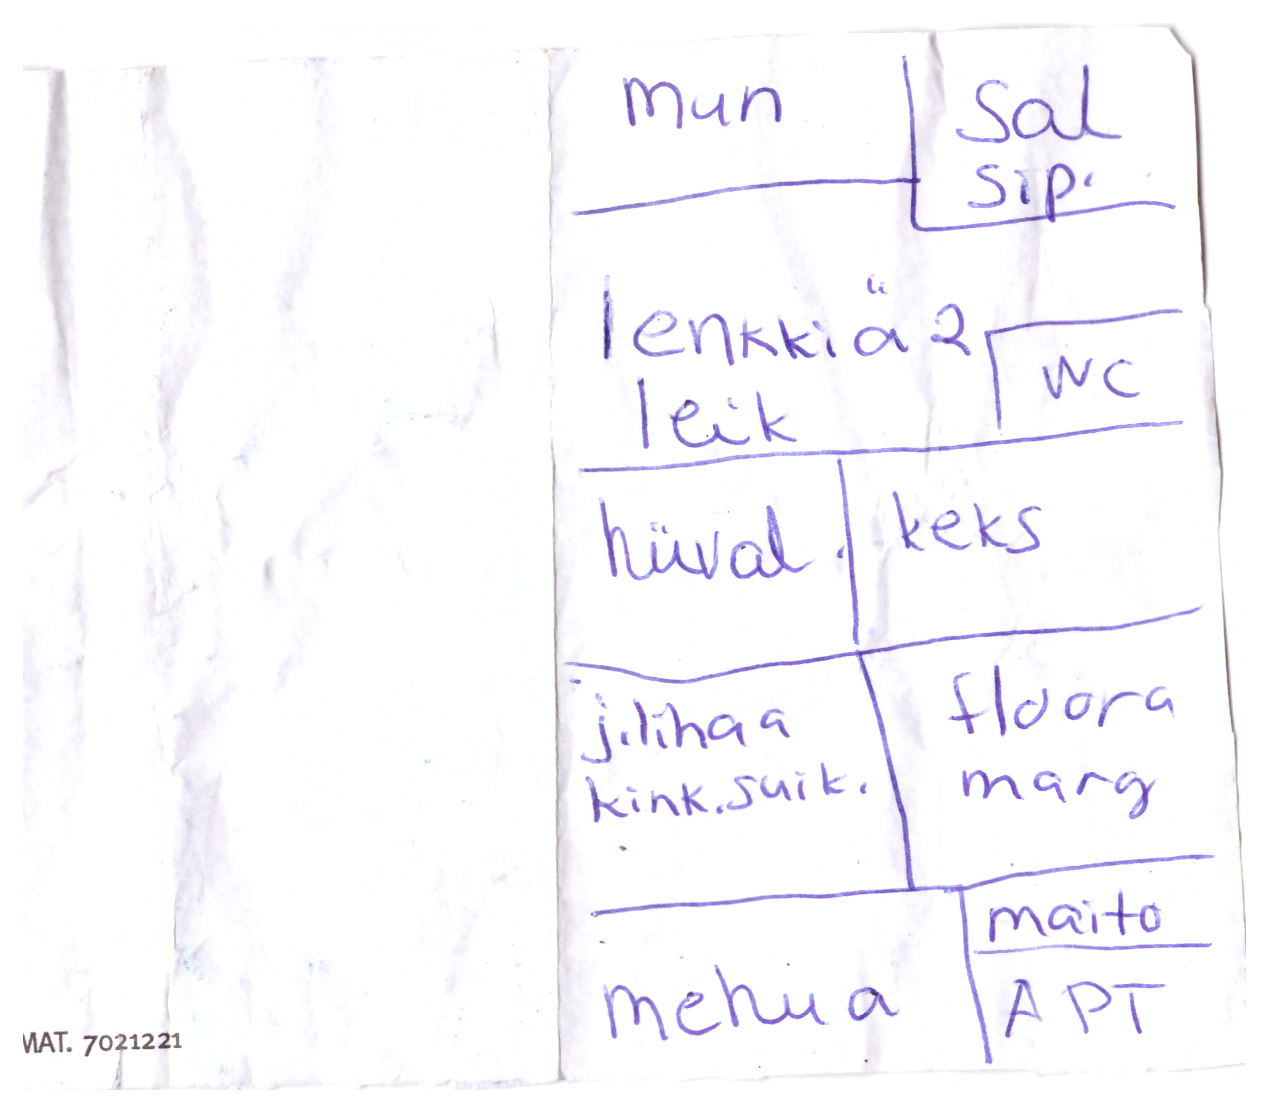 mun
Sal
sip.
lenkkiä 2
WC
leik
hiival.
keks
j.lihaa
kink.suik.
floora
marg
maito
mehua
APT
MAT. 7021221